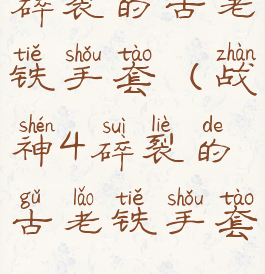 碎裂的古老
tiě shǒu tào zhàn
铁手套(战
shén suì liè de
神4碎裂的
gǔ lǎo tiě shǒu tào
古老铁手套